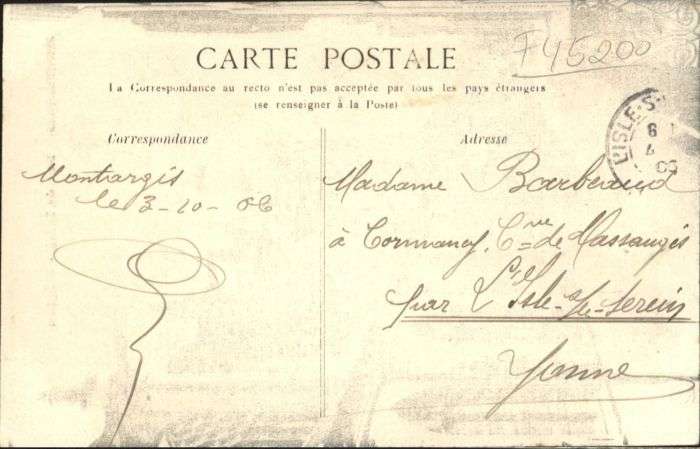 F45200
CARTE POSTALE
La Correspondance au recto n'est pas acceptée par tous les pays étrangers
(se renseigner à la Poste)
Correspondance
Adresse
L'ISLE-S
Montargis
le 3-10-06
Madame Barbeaud
à Cormancy, Cne de Massangis
par L'Isle-s/-Serein
Yonne